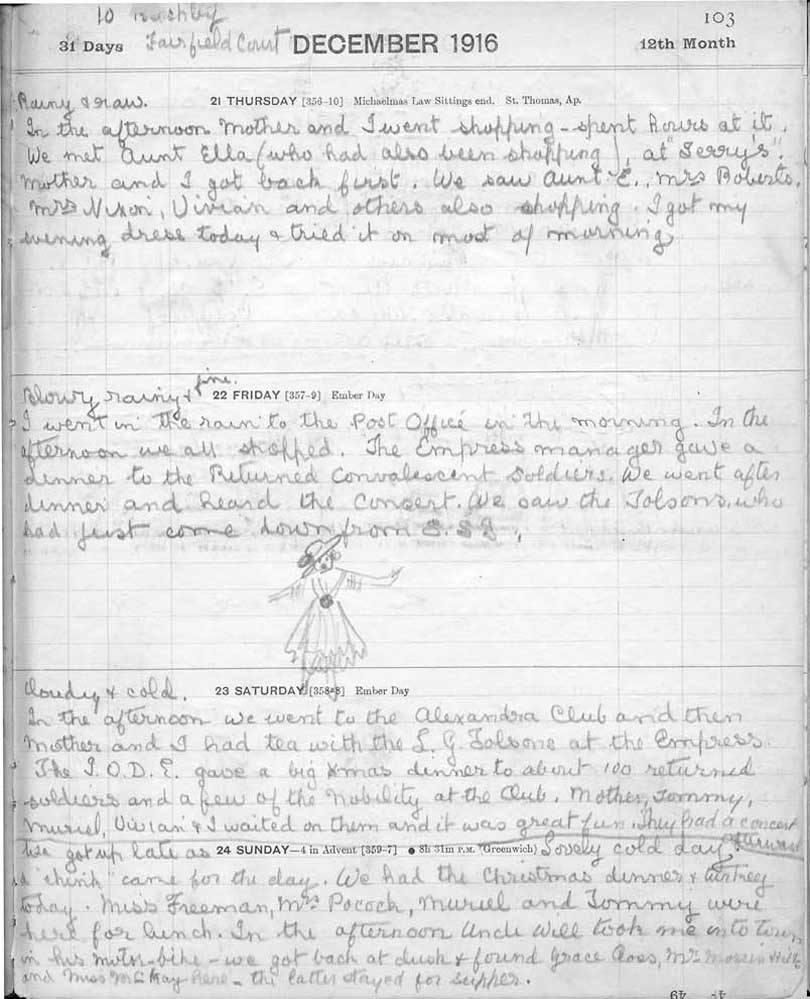 10
103
Fairfield Court
31 Days DECEMBER 1916 12th Month
Rainy & raw. 21 THURSDAY [356-10] Michaelmas Law Sittings end. St. Thomas, Ap.
In the afternoon Mother and I went shopping - spent hours at it.
We met Aunt Ella (who had also been shopping), at
Mother and I got back first. We saw Aunt E., Mrs Roberts,
Mrs Nixon, Vivian and others also shopping. I got my
evening dress today & tried it on most of morning
fine.
Blowy rainy & 22 FRIDAY [357-9] Ember Day
I went in the rain to the Post Office in the morning. In the
afternoon we all shopped. The Empress manager gave a
dinner to the Returned Convalescent Soldiers. We went after
dinner and heard the Concert. We saw the Tolsons, who
had just come down from
Cloudy & cold. 23 SATURDAY [358-8] Ember Day
In the afternoon we went to the Alexandra Club and then
Mother and I had tea with the L. G. Tolsons at the Empress.
The I.O.D.E. gave a big Xmas dinner to about 100 returned
soldiers and a few of the nobility at the Club. Mother, Tommy,
Muriel, Vivian & I waited on them and it was great fun. They had a concert
We got up late as 24 SUNDAY—4 in Advent [359-7] ● 8h 31m P.M. (Greenwich) Lovely cold day
a "chink" came for the day. We had the Christmas dinner &
today. Miss Freeman, Mrs Pocock, Muriel and Tommy were
here for lunch. In the afternoon Uncle Will took me into town
in his motor-bike - we got back at dusk & found Grace
and Miss McKay here - the latter stayed for supper.